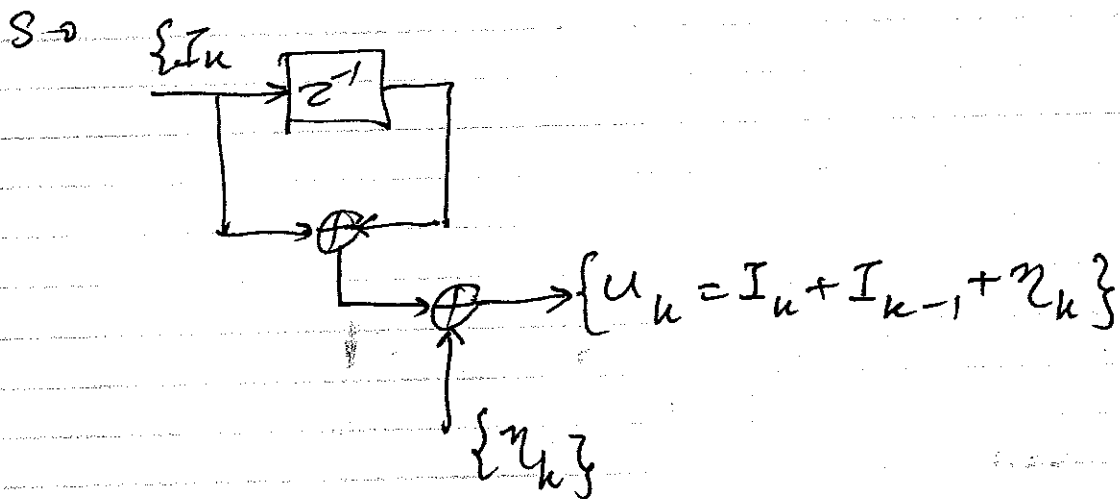 S→
{I_k
z^{-1}
{u_k = I_k + I_{k-1} + η_k}
{η_k}